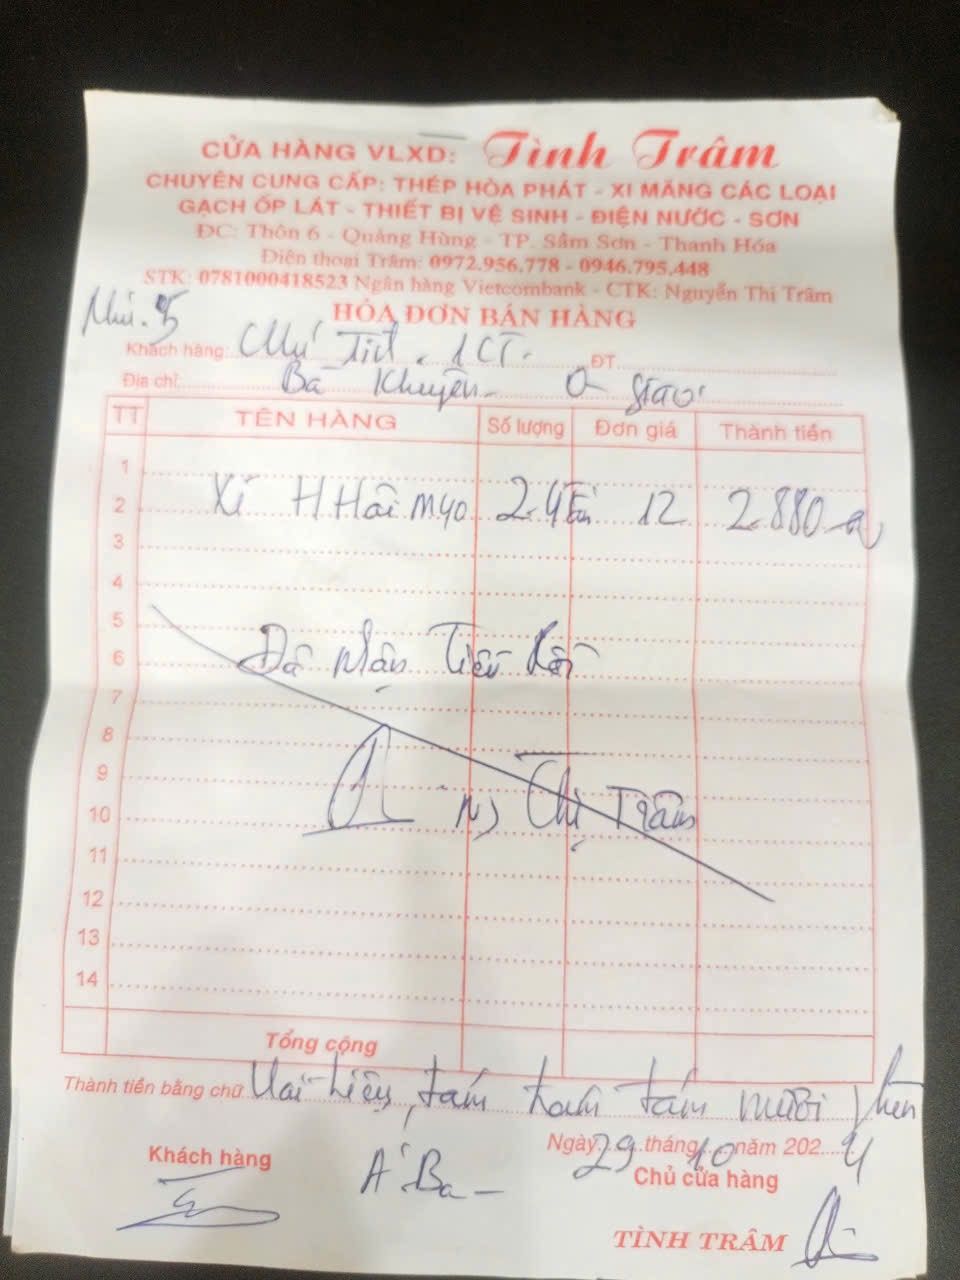 CỬA HÀNG VLXD: Tình Trâm
CHUYÊN CUNG CẤP: THÉP HÒA PHÁT - XI MĂNG CÁC LOẠI
GẠCH ỐP LÁT - THIẾT BỊ VỆ SINH - ĐIỆN NƯỚC - SƠN
ĐC: Thôn 6 - Quảng Hùng - TP. Sầm Sơn - Thanh Hóa
Điện thoại Trâm: 0972.956.778 - 0946.795.448
STK: 0781000418523 Ngân hàng Vietcombank - CTK: Nguyễn Thị Trâm
HÓA ĐƠN BÁN HÀNG
Khách hàng: Chú 1CT. ĐT
Địa chỉ: Bá Khuyên
TT TÊN HÀNG Số lượng Đơn giá Thành tiền
1
2 Xi M40 2.4 12 2.880
3
4
5
6 Đã nhận Tiền
7
8
9
10 Chị Trâm
11
12
13
14
Tổng cộng
Thành tiền bằng chữ Hai triệu, tám trăm tám mươi
Ngày 29 tháng 10 năm 2024
Khách hàng A Ba Chủ cửa hàng
TÌNH TRÂM